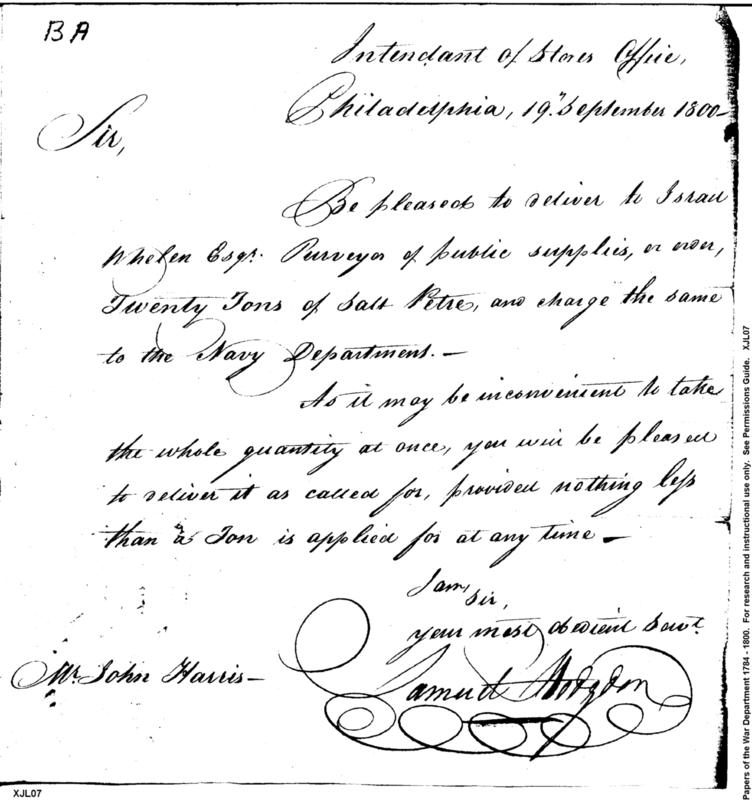 BA
Intendant of Stores Office,
Philadelphia, 19th September 1800-
Sir,
Be pleased to deliver to Israel
Whelen Esqr. Purveyor of public supplies, or order,
Twenty Tons of Salt Petre, and charge the same
to the Navy Department. -
As it may be inconvenient to take
the whole quantity at once, you will be pleased
to deliver it as called for, provided nothing less
than a Ton is applied for at any time -
I am,
Sir,
your most obedient Servt.
Samuel Hodgdon
Mr. John Harris -
XJL07
Papers of the War Department 1784 - 1800. For research and instructional use only. See Permissions Guide. XJL07